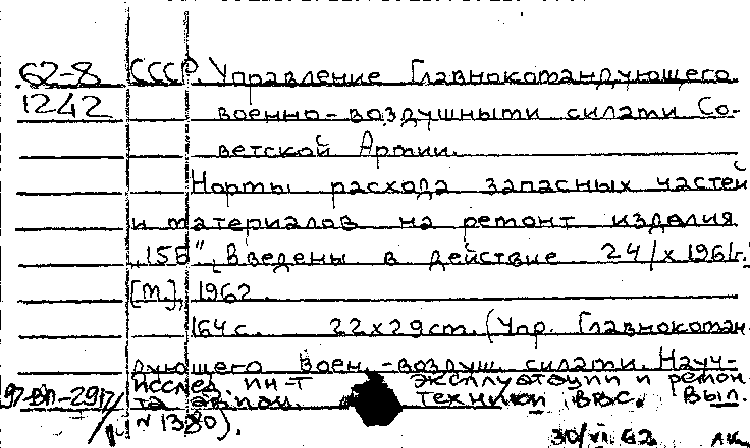 62-8 СССР. Управление Главнокомандующего
1242 военно-воздушными силами Со-
ветской Армии.
Нормы расхода запасных частей
и материалов на ремонт изделия
„15Б", [Введены в действие 24/X 1961г.]
[М.], 1962.
164 с. 22х29см. (Упр. Главнокоман-
дующего Воен.-воздуш. силами. Науч-
исслед. ин-т эксплуатации и ремон
97-ВП-29 та авиац. техники ВВС. Вып.
№ 1380).
30/VI 62